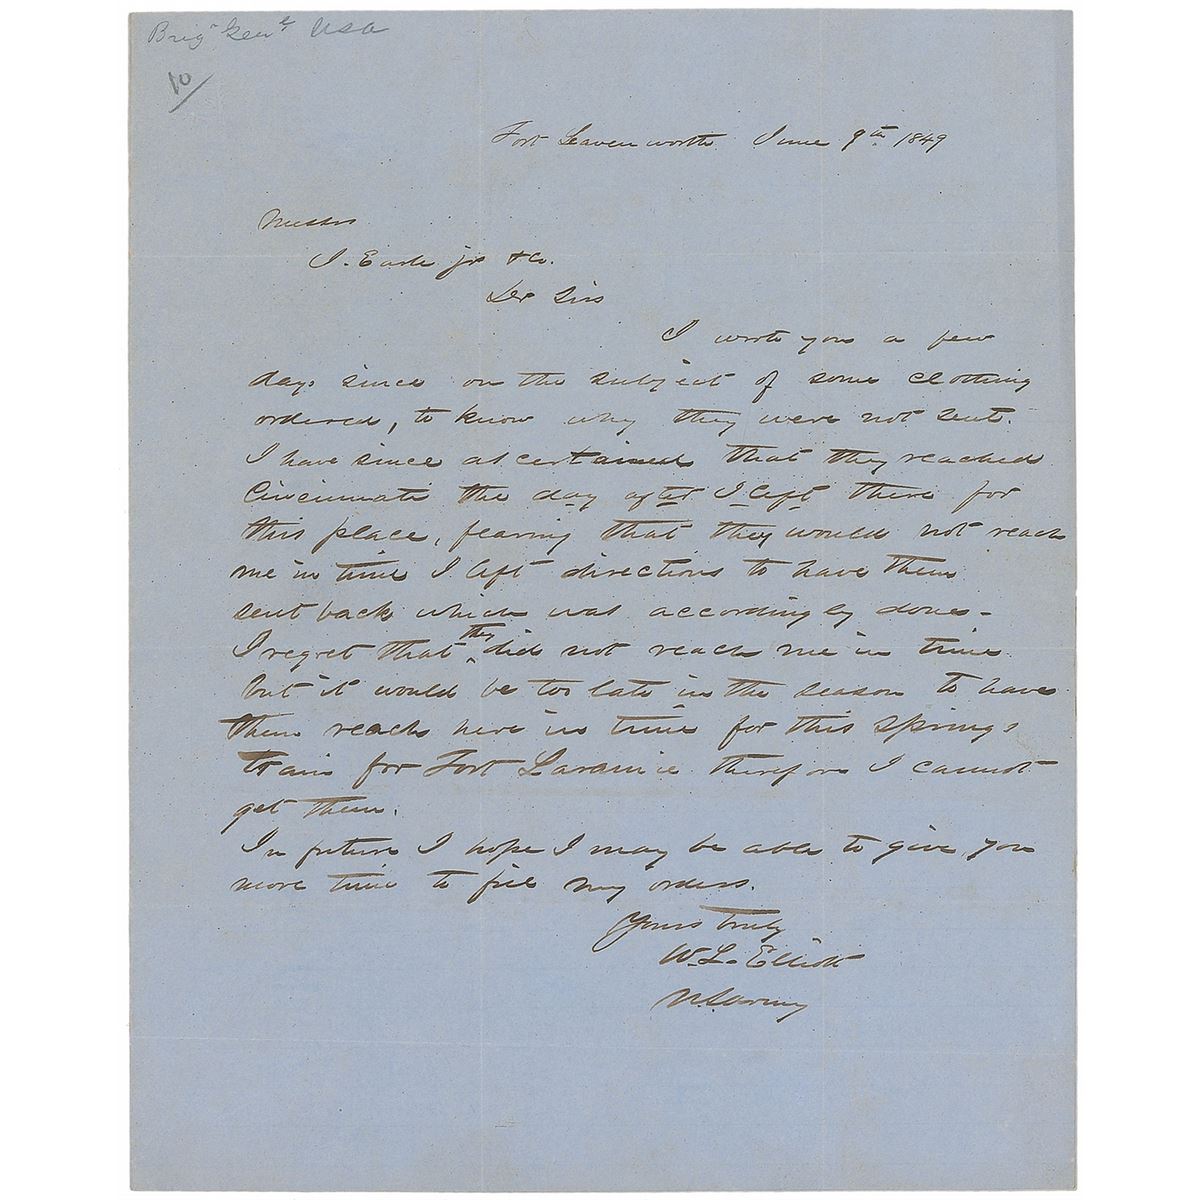 Brigr Genl USA
10/
Fort Leavenworth June 9th 1849
Messrs
J. Earle jr & Co.
Der Sirs
I wrote you a few
days since on the subject of some clothing
ordered, to know why they were not sent.
I have since ascertained that they reached
Cincinnati the day after I left there for
this place, fearing that they would not reach
me in time I left directions to have them
sent back which was accordingly done -
I regret that they did not reach me in time
but it would be too late in the season to have
them reach here in time for this springs
train for Fort Laramie therefore I cannot
get them.
In future I hope I may be able to give you
more time to fill my orders.
Yours Truly
W. L. Elliott
U.S. Army